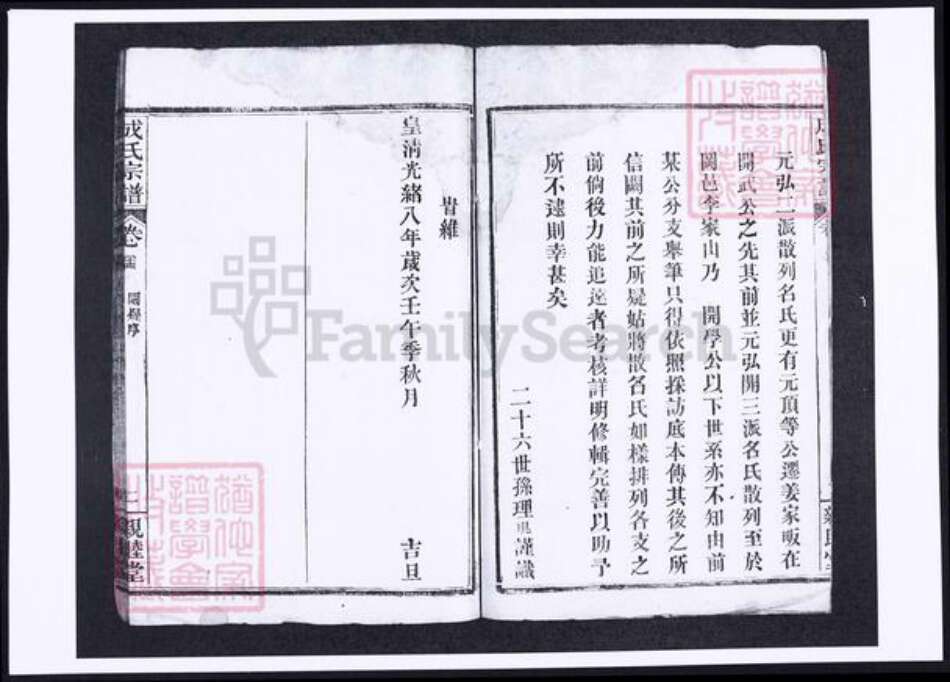 元弘一派散列名氏更有元頂等公遷姜家畈在
開武公之先其前並元弘開三派名氏散列至於
闕邑李家山乃　開學公以下世系亦不知由前
某公分支舉筆只得依照採訪底本傳其後之所
信闕其前之所疑姑將散名氏如樣排列各支之
前倘後力能追遠者考核詳明修輯完善以助予
所不逮則幸甚矣
二十六世孫理謹識
皆維
皇清光緒八年歲次壬午季秋月　吉旦
成氏宗譜
卷
序
二
親睦堂
FamilySearch